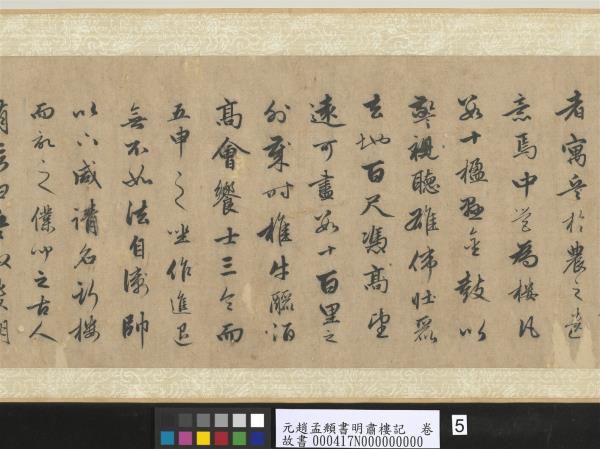 者寓兵於農之遺
意焉中營為樓凡
數十楹懸金鼓以
警視聽雄偉壯麗
去地百尺憑高望
遠可盡數十百里之
外歲時椎牛釃酒
高會饗士三令而
五申之坐作進退
無不如法自衛帥
以下咸請名斯樓
而記之僕聞之古人
有言曰
元趙孟頫書明肅樓記 卷
故書000417N000000000
5